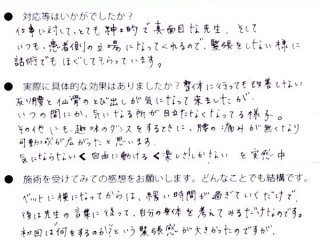 ● 対応等はいかがでしたか？
仕事に対して、とても紳士的で真面目な先生、そして
いつも、患者側の立場になってくれるので、緊張をしない様に
話術でもほぐしてもらっています。
● 実際に具体的な効果はありましたか？ 整体に行っても改善しない
反り腰と仙骨のとび出しが気になって来ましたが、
いつの間にか、気になる所が目立たなくなってる様子。
その他にも、趣味のダンスをするときに、腰の痛みが無くなり
可動域が広がったと思います。
気にならない く 自由に動ける く 楽しさしかない を 実感中
● 施術を受けてみての感想をお願いします。どんなことでも結構です。
ベットに横になってからは、緩い時間が過ぎていくだけで、
後は先生の言葉に従って、自分の身体を考えてみるだけなのです。
初回は何をするのか？という緊張感が大きかったのですが、